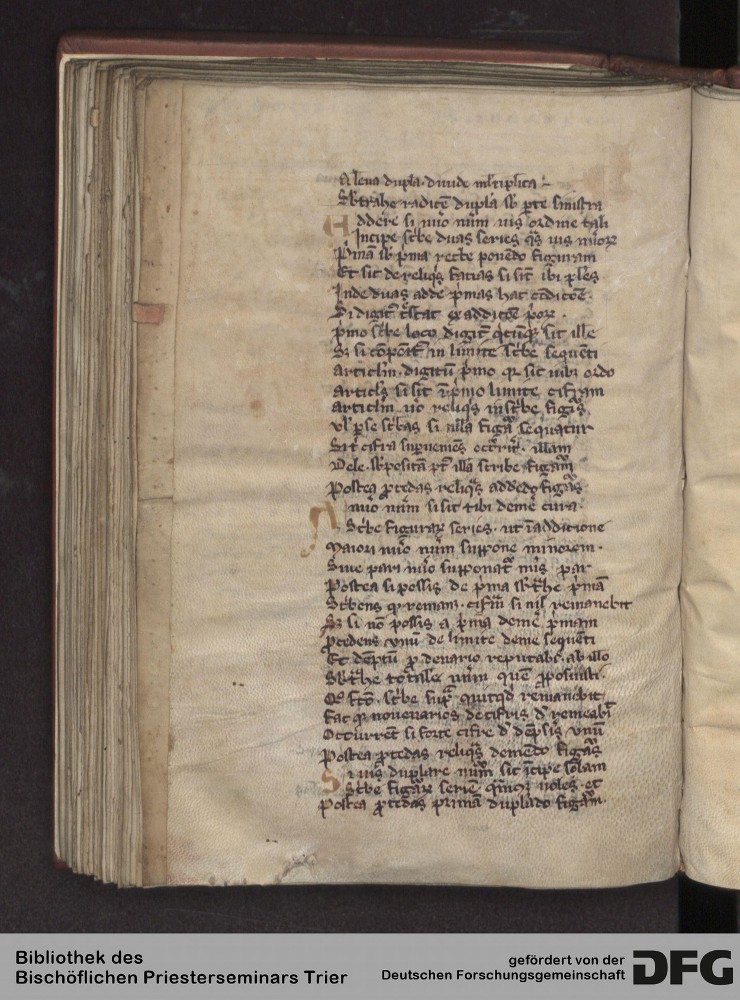 A leua dupla. diuide ml̄tiplica
Sb̄trahe radicē dupla sb̄ ꝑte sinistra
Addere si nūo nūm uis ordine tali
Incipe sc̄be duas series q̄s uis nūoꝝ
Pͥmā sb̄ pͥma recte ponēdo figuram
Et sic de reliqͥs facias si sīt ibi ꝑles
Inde duas adde pͥmas hac cōdicōe.
Si digitꝰ c̄scat ex addicōe pͥoꝝ.
Pͥmo sc̄be loco digitū q̄cūqꝫ sit ille
Sꝫ si cōpōitꝰ in limite sc̄be sequēti
Articlm̄. digitū pͥmo qꝛ sic iubꝫ ordo
Articlꝰ si sit ī pͥmo limite cifram
Articlm̄ uͦo reliqͥs inscͥbe figͥs
Vl̓ ꝑ se scͥbas si nlla figᷓ sequatur
Si t̄ cifra suꝑueniēs occr̄rit. illam
Dele. sb̄positā pꝰ illā scribe figᷓm
Postea ꝓcedas reliqͣs addēdo figᷓs
A nūo nūm si sit tibi demē cura.
Scͥbe figuraꝝ series. ut ī additione
Maiori nūo nūm suppone minorem.
Siue pari nūo supponatᷣ nūs par
Postea si possis de pͥma sb̄tͣhe pͥmā
Scͥbens qᷓ remanꝫ. cifrā si nil̓ remanebit
Sꝫ si nō possis a pͥma demē pͥmam
Ꝓcedens vnū de limite deme sequēti
Et dēptū ꝓ denario reputabͥs. ab illo
Sb̄tͣhe totale nūm quē ꝓposuisti.
Qͦ fc̄o. scͥbe supͣ quitqͥd remanebit
Fac qᷓ nouenarios de cifris dᷣ remeabͥs
Occurrēt si forte cifre dᷣ dēpsͥis vnū
Postea ꝓcedas reliqͣs demēdo figᷓs
Si uis duplare nūm sic īcipe solam
Scͥbe figᷓꝝ seriē qᷓmcūqꝫ uoles. et
Postea ꝓcedas primā duplādo figᷓm.
Bibliothek des
Bischöflichen Priesterseminars Trier
gefördert von der
Deutschen Forschungsgemeinschaft
DFG